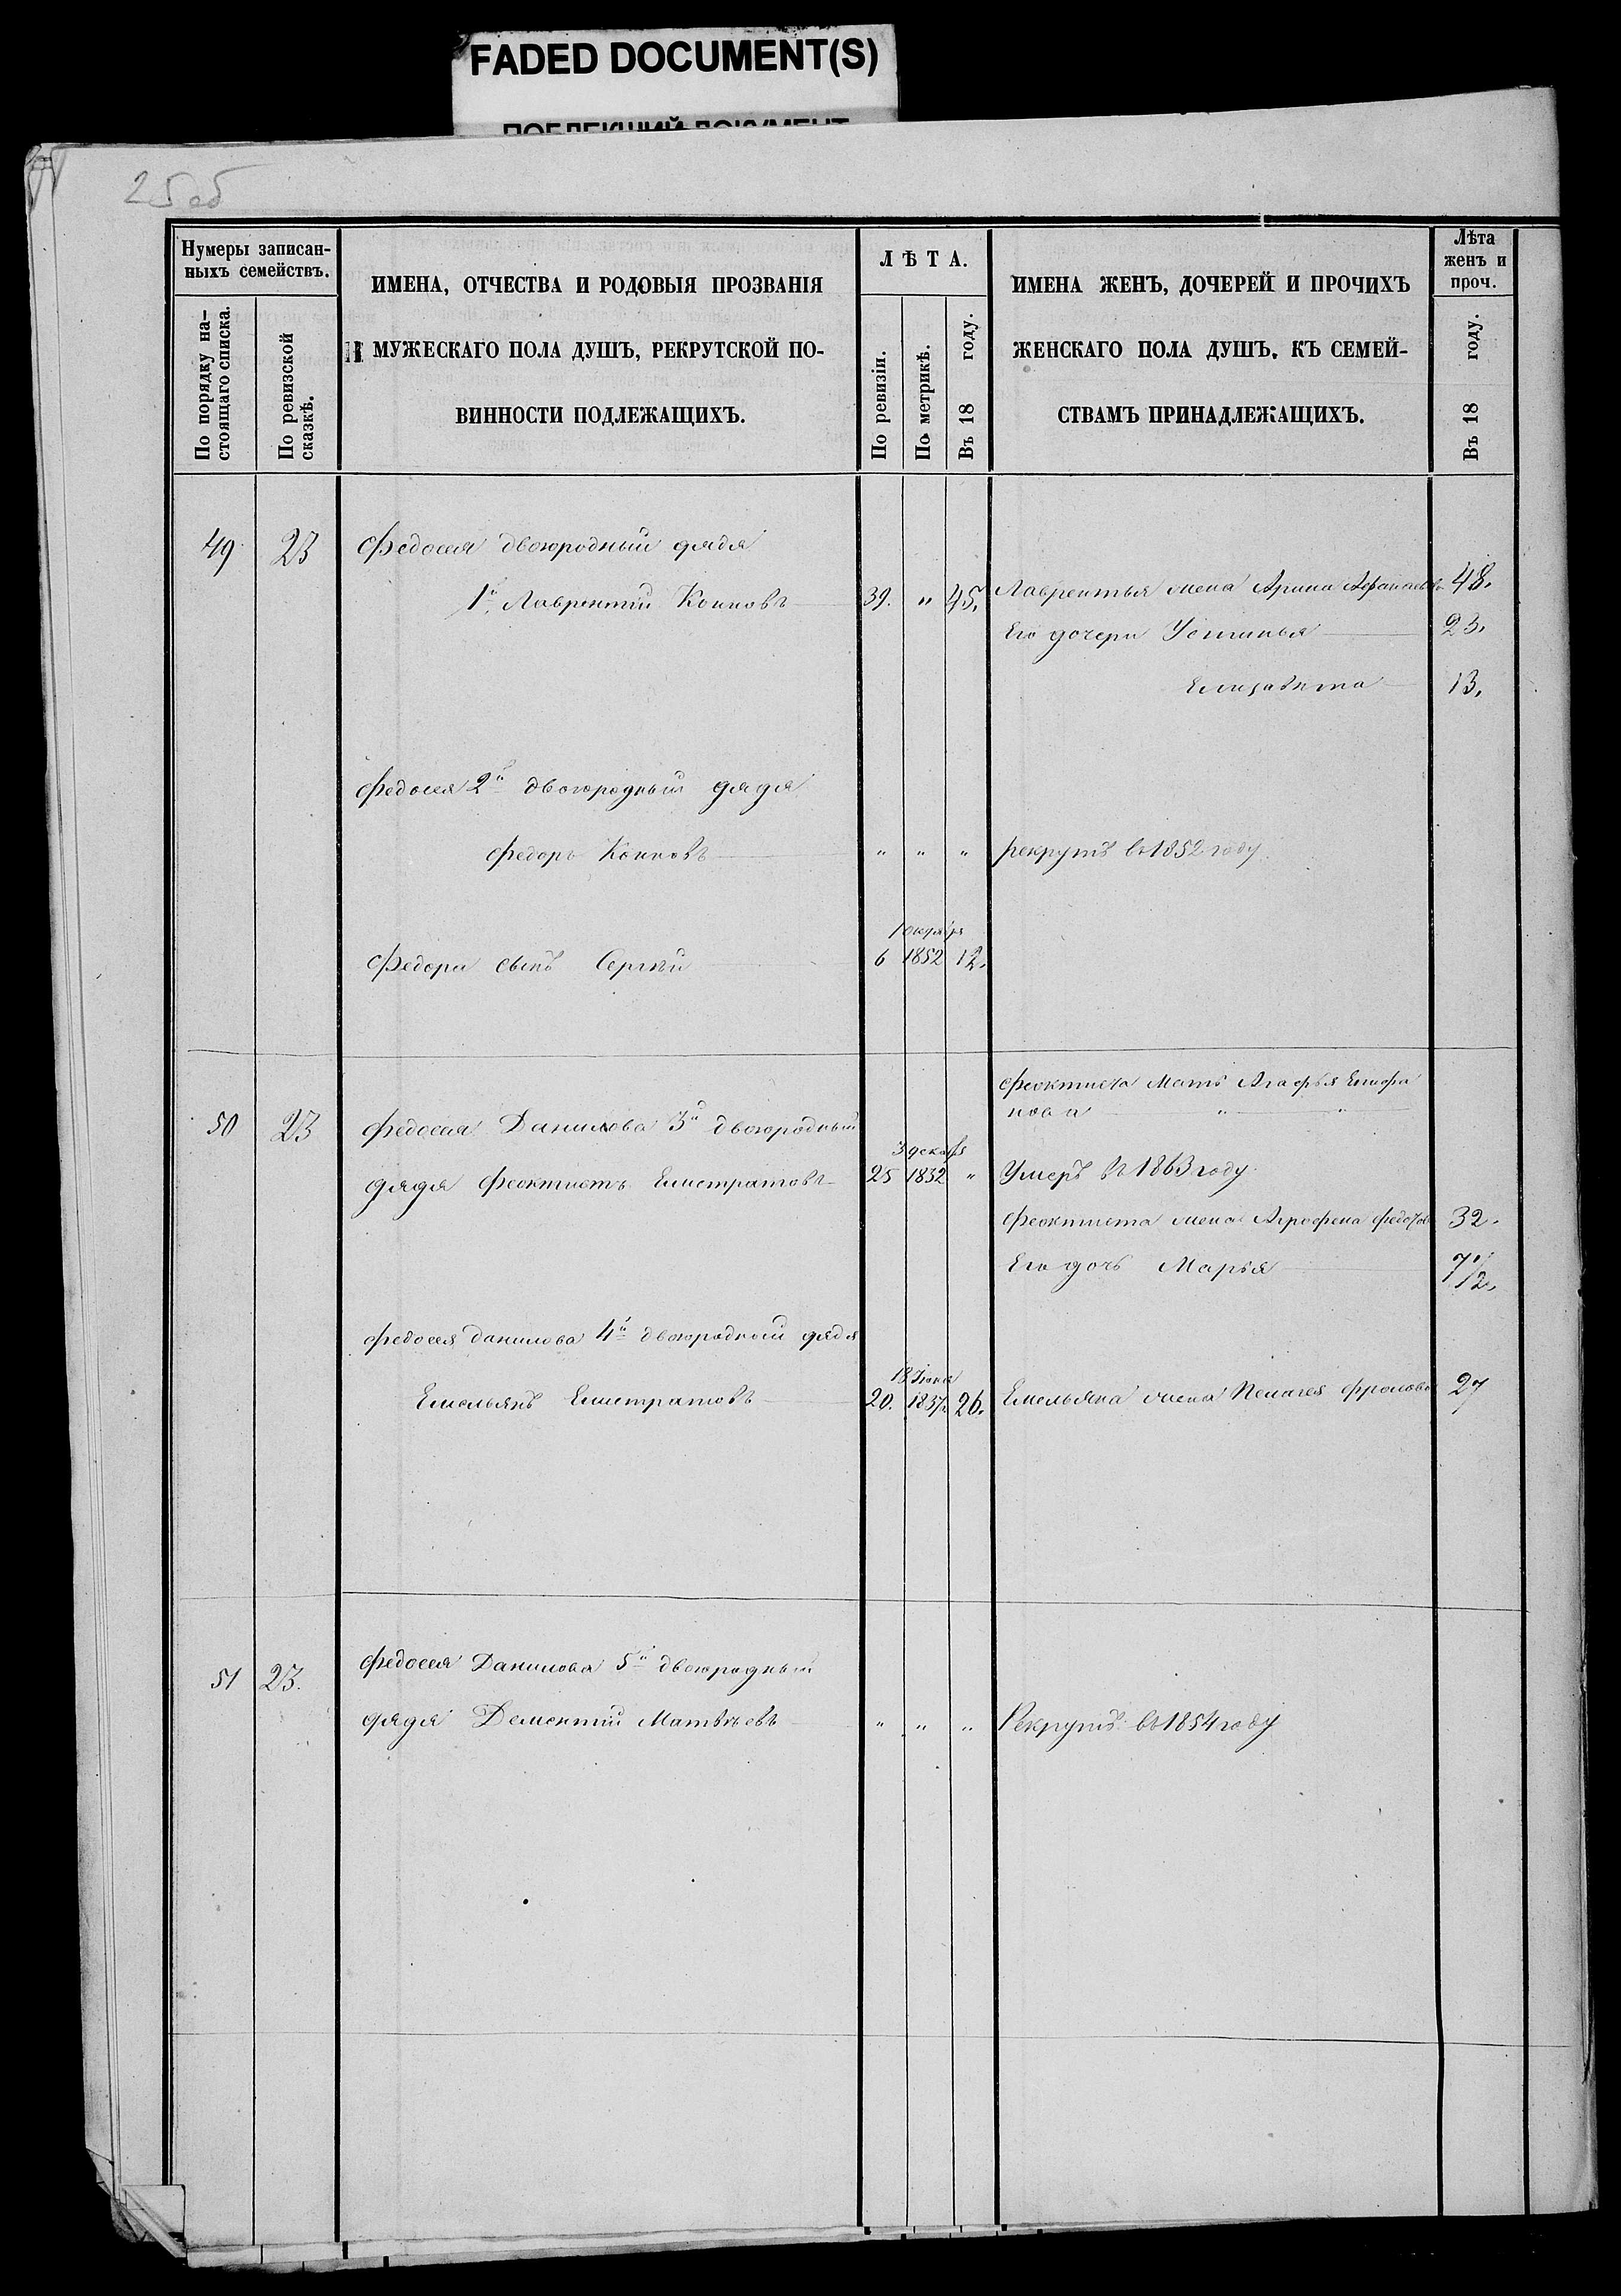 FADED DOCUMENT(S)
ПОБЛЕКШИЙ ДОКУМЕНТ
25 об
Нумеры записан-
ныхъ семействъ.
По порядку на-
стоящаго списка.
По ревизской
сказкѣ.
ИМЕНА, ОТЧЕСТВА И РОДОВЫЯ ПРОЗВАНІЯ
МУЖЕСКАГО ПОЛА ДУШЪ, РЕКРУТСКОЙ ПО-
ВИННОСТИ ПОДЛЕЖАЩИХЪ.
ЛѢТА.
По ревизіи.
По метрикѣ.
Въ 18 году.
ИМЕНА ЖЕНЪ, ДОЧЕРЕЙ И ПРОЧИХЪ
ЖЕНСКАГО ПОЛА ДУШЪ, КЪ СЕМЕЙ-
СТВАМЪ ПРИНАДЛЕЖАЩИХЪ.
Лѣта
женъ и
проч.
Въ 18 году.
49 23 Федосея двоюродный дядя
1й Лаврентій Коновъ 39. " 45. Лаврентья жена Арина 48.
Его дочери Устинья 23.
Елизавета 13.
Федосея 2й двоюродный дядя
Федоръ Коновъ " " " рекрутъ въ 1852 году
1 октября
Федора сынъ Сергѣй 6 1852 12.
Феоктиста мать Агафья Епифа
нова " "
50 23 Федосея Данилова 3й двоюродный
3 декабря
дядя Феоктистъ Елистратовъ 25 1832 " Умеръ въ 1863 году.
Феоктиста жена Аграфена Федотова 32.
Его дочь Марья 7 1/2.
Федосея Данилова 4й двоюродный дядя
18 Іюля
Емельянъ Елистратовъ 20. 1837 26. Емельяна жена Пелагея Фролова 27
51 23. Федосея Данилова 5й двоюродный
дядя Дементій Матвѣевъ " " " Рекрутъ въ 1854 году